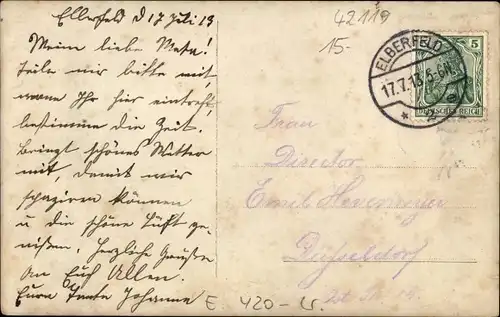 Elberfeld d 17 Juli 13
Meine liebe Meta!
Teile mir bitte mit,
wann Ihr hier eintrefft,
bestimme die Zeit.
Bringt schönes Wetter
mit, damit wir
spaziren können
u die schöne Luft ge-
nißen. Herzliche Grüße
an Euch Allen.
Eure Tante Johanne
42119
15-
ELBERFELD
17.7.13. 5-6N
5
DEUTSCHES REICH
Frau
Director
Emil
Düsseldorf
E. 420-